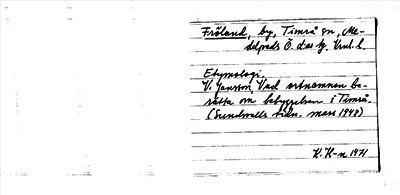 Fröland, by, Timrå sn, Me-
delpads Ö. d:as tg. Vnl. l.
Etymologi.
V. Jansson, Vad ortnamnen be-
rätta om bebyggelsen i Timrå.
(Sundsvalls tidn. mars 1948)
K. H-n 1971